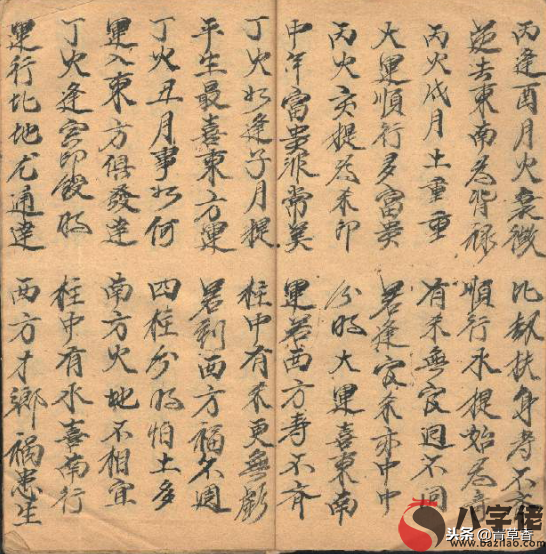 丙逢酉月火衰微 比劫扶身寿不
逆去東南為背禄 順行水提始為奇
丙火戌月土重重 有木無官迥不同
大運順行多富貴 若逢官杀亦中中
丙火亥提為杀印 分明大運喜東南
中年富貴非常美 運若西方寿不齐
丁火如逢子月提 柱中有木更無虧
平生最喜東方運 若到西方福不週
丁火丑月事如何 四柱分明怕土多
運入東方俱發達 南方火地不相宜
丁火逢寅印綬明 柱中有水喜南行
運行北地尤通達 西方才鄉禍患生
八字佬
www.bazilao.com
头条 @青草香